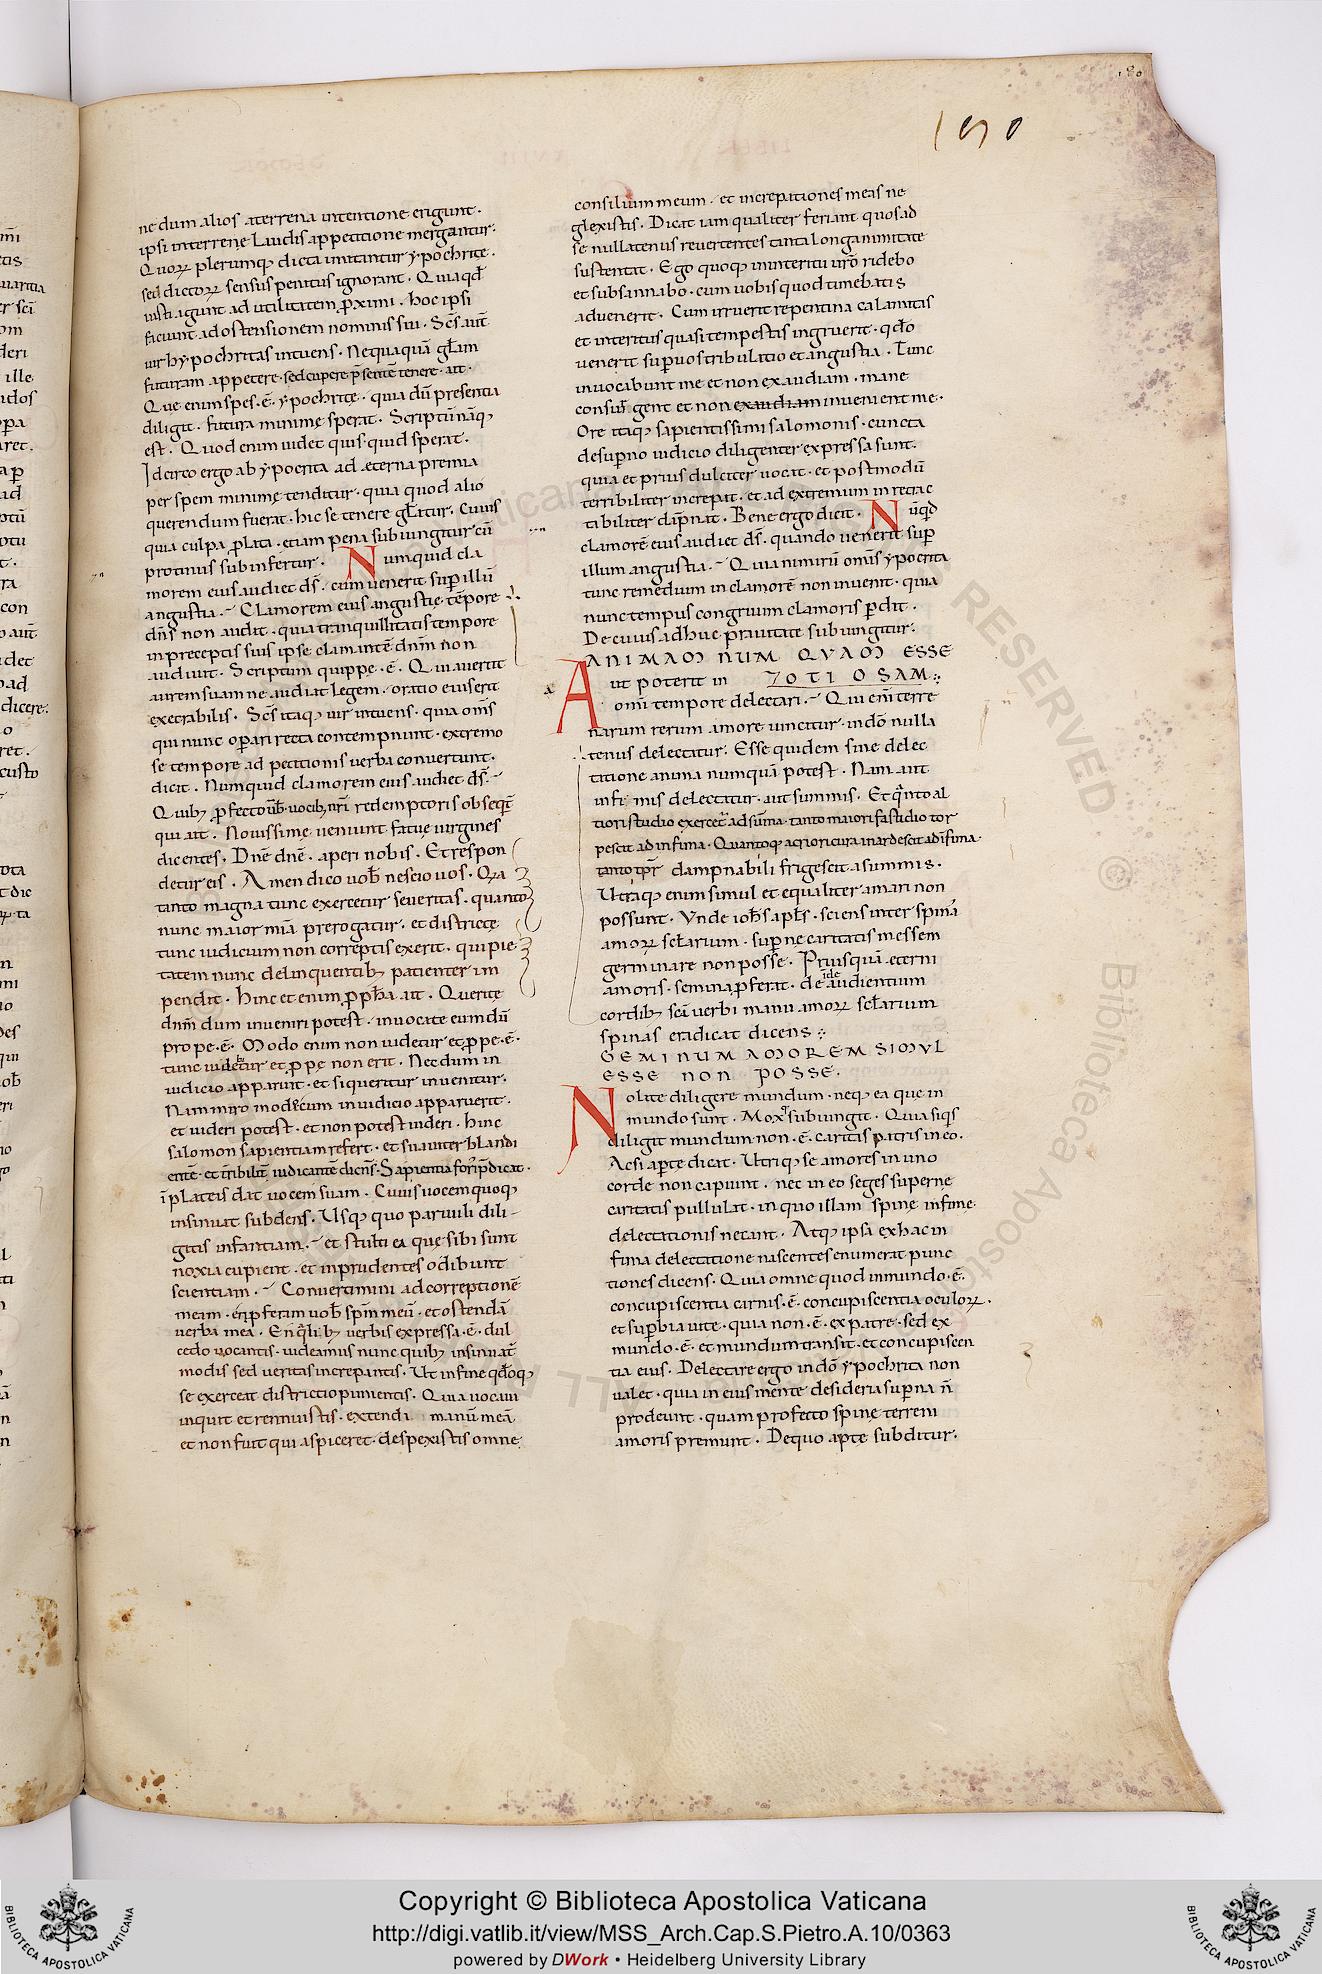 180
190
ne dum alios a terrena intentione erigunt.
ipsi in terrenę Laudis appetitione mergantur.
Quoꝝ plerumq; dicta imitantur ypochritę.
sed dictoꝝ sensus penitus ignorant. Quia qđ
iusti agunt ad utilitatem ꝓximi. hoc ipsi
faciunt ad ostensionem nominis sui. Sc̄s aut̄
uir hypochritas intuens. Nequaquā gl̄am
futuram appetere. sed cupere p̄sentē tenere. ait.
Que enim spes.ē. ypochritę. quia dū presentia
diligit. futura minimę sperat. Scriptū nāq;
est. Quod enim uidet quis quid sperat.
Idcirco ergo ab ypocrita ad ęterna premia
per spem minimę tenditur. quia quod alio
querendum fuerat. hic se tenere gl̄atur. Cuius
quia culpa ꝓlata. etiam pena subiungitur cū
protinus sub infertur. Numquid cla
morem eius audiet ds̄. cum uenerit sup̱ illū
angustia. Clamorem eius angustię tēpore
dn̄s non audit. quia tranquillitatis tempore
in preceptis suis ipse clamantē dn̄m non
audiuit. Scriptum quippe.ē. Qui auertit
aurem suam ne audiat legem. oratio eius erit
execrabilis. Sc̄s itaq; uir intuens. quia om̄s
qui nunc op̱ari recta contempnunt. extremo
se tempore ad petitionis uerba conuertunt.
dicit. Numquid clamorem eius audiet ds̄.
Quib; ꝓfecto uerb. uocib; nr̄i redemptoris obseqt̄
qui ait. Nouissime ueniunt fatuę uirgines
dicentes. Dnē dnē. aperi nobis. Et respon
detur eis. Amen dico uob̄ nescio uos. Q̄a
tanto magna tunc exercetur seueritas. quanto
nunc maior mīa prerogatur. et districtę
tunc iudicium non correptis exerit. qui pie
tatem nunc delinquentib; patienter im
pendit. Hinc et enim ꝓph̄a ait. Querite
dn̄m dum inueniri potest. inuocate eum dū
prope.ē. Modo enim non uidetur et ꝓpe.ē.
tunc uidebitur et ꝓpe non erit. Nec dum in
iudicio apparuit. et si queritur inuenitur.
Nam miro modo cum in iudicio apparuerit.
et uideri potest. et non potest uideri. Hinc
salomon sapientiam refert. et suauiter blandi
entē. et t̄ribilit̄ iudicantē dicen̄s. Sapientia foris p̄dicat.
ī plateis dat uocem suam. Cuius uocem quoq;
insinuat subdens. Usq; quo paruuli dili
gitis infantiam. et stulti ea que sibi sunt
noxia cupient. et inprudentes odibunt
scientiam. Conuertimini ad correptionē
meam. en ꝓferam uob̄ spm̄ meū. et ostendā
uerba mea. En q̄lib; uerbis expressa.ē. dul
cedo uocantis. uideamus nunc quib; insinuat̄
modis sed ueritas increpantis. Ut in fine qđoq;
se exerceat districtio punientis. Quia uocaui
inquit et rennuistis. extendi manū meā.
et non fuit qui aspiceret. despexistis omne
consilium meum. et increpationes meas ne
glexistis. Dicat iam qualiter feriant quos ad
se nullatenus reuertentes tanta longanimitate
sustentat. Ego quoque in interitu ur̄o ridebo
et subsannabo. cum uobis quod timebatis
aduenerit. Cum irruerit repentina calamitas
et interitus quasi tempestas ingruerit. qđo
uenerit sup̱ uos tribulatio et angustia. Tunc
inuocabunt me et non exaudiam. mane
consur gent et non exaudiam inuenient me.
Ore itaq; sapientissimi salomonis. cuncta
de sup̱no iudicio diligenter expressa sunt.
quia et prius dulciter uocat. et postmodū
terribiliter increpat. et ad extremum in retrac
tabiliter dāpnat. Bene ergo dicit. Nūqđ
clamorē eius audiet ds̄. quando uenerit sup̱
illum angustia. Quia nimirū om̄s ypocrita
tunc remedium in clamorē non inuenit. quia
nunc tempus congruum clamoris p̱dit.
De cuius adhuc prauitate subiungitur.
ANIMAM NUMQUAM ESSE
Aut poterit in OTIOSAM.
omni tempore delectari. Qui enī terre
narum rerum amore uincitur. in dō nulla
tenus delectatur. Esse quidem sine delec
tatione anima numquā potest. Nam aut
infimis delectatur. aut summis. Et q̄nto al
tiori studio exercet̄ ad sūma. tanto maiori fastidio tor
pescit ad infima. Quantoq; acriori cura inardescit ad īfima.
tanto tꝑr dampnabili frigescit a summis.
Utraq; enim simul et equaliter amari non
possunt. Vnde ioh̄s apl̄s. sciens inter spinā
amoꝝ sclarium. sup̱ne caritatis messem
germinare non posse. Priusquā eterni
amoris. semina ꝓferat. de audientium
cordib; scī uerbi manu amoꝝ seclarium
spinas eradicat dicens
GEMINUM AMOREM SIMVL
ESSE NON POSSE.
Nolite diligere mundum. neq; ea que in
mundo sunt. Mox subiungit. Quia siq̄s
diligit mundum non.ē. caritas patris in eo.
Acsi ap̱te dicat. Utriq; se amores in uno
corde non capiunt. nec in eo seges supernę
caritatis pullulat. in quo illam spinę infimę
delectationis necant. Atq; ipsa ex hac in
fima delectatione nascentes enumerat punc
tiones dicens. Quia omne quod in mundo.ē.
concupiscentia carnis.ē. concupiscentia oculoꝝ.
et sup̱bia uite. quia non.ē. ex patre. sed ex
mundo.ē. et mundum transit. et concupiscen
tia eius. Delectare ergo in dō ypochrita non
ualet. quia in eius mente desideria sup̱na n̄
prodeunt. quam profecto spinę terreni
amoris premunt. De quo apte subditur.
Copyright © Biblioteca Apostolica Vaticana
http://digi.vatlib.it/view/MSS_Arch.Cap.S.Pietro.A.10/0363
powered by DWork • Heidelberg University Library